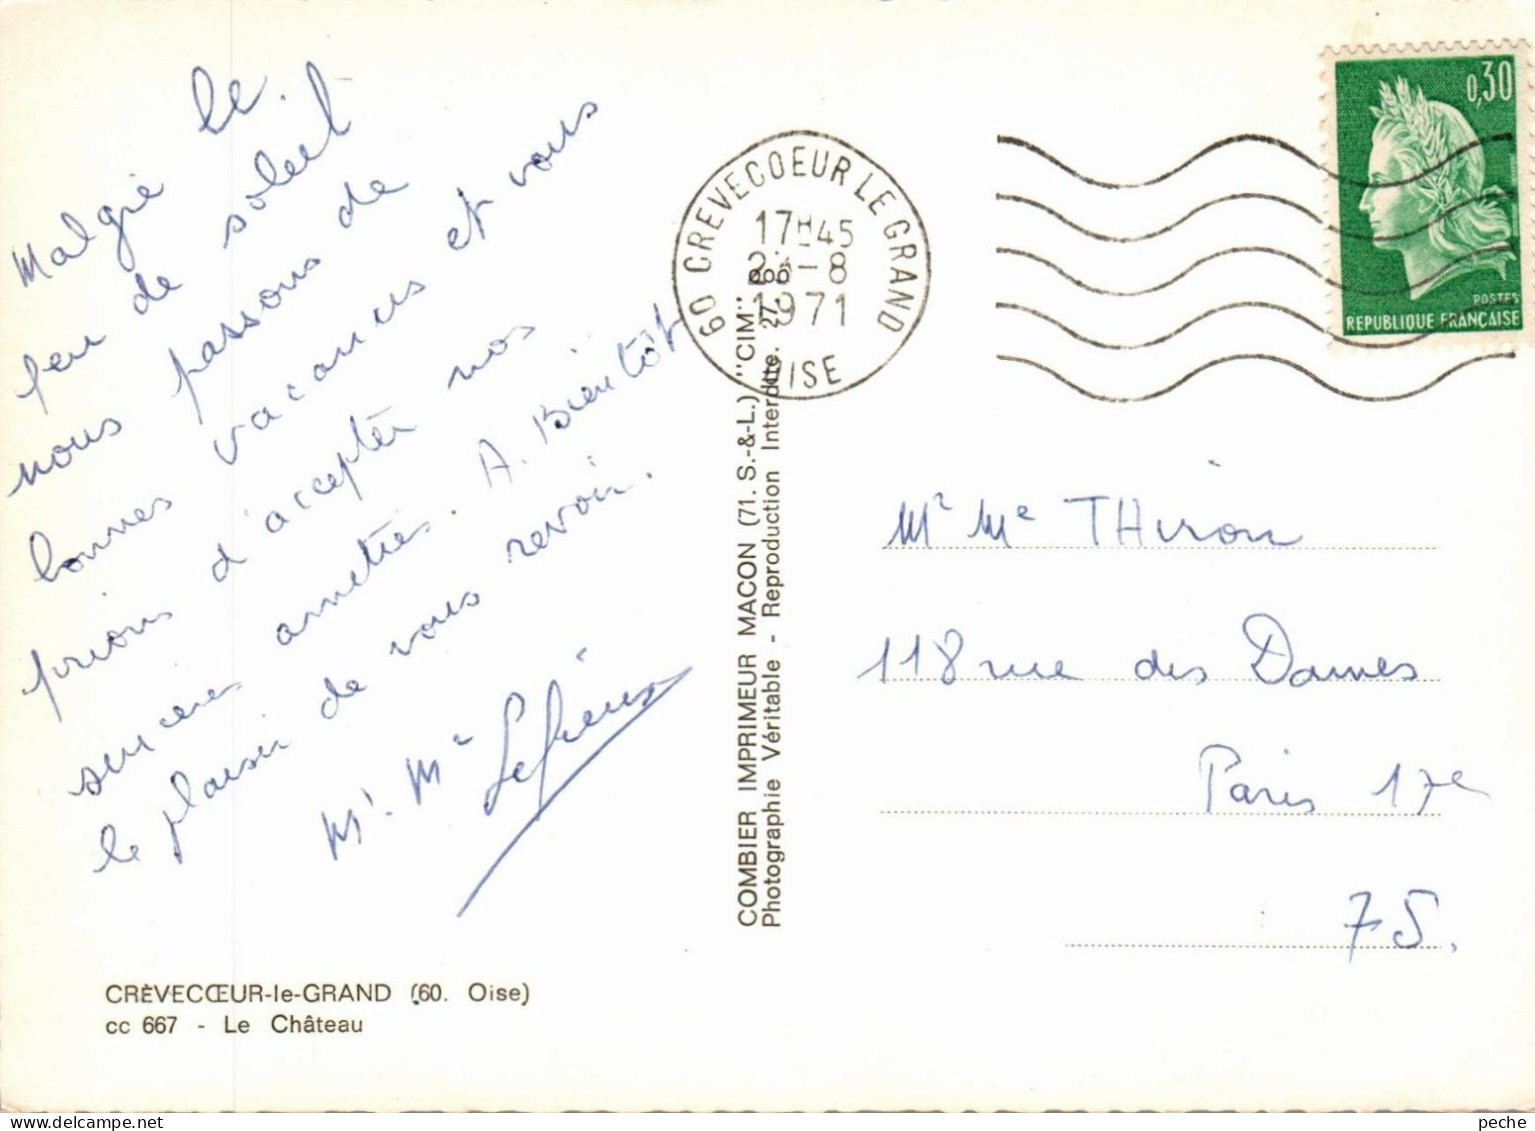 le.
Malgré
peu de soleil
nous passons de
bonnes vacances et vous
prions d'accepter nos
sinceres amitiés. A. Bientôt
le plaisir de vous revoir.
Mr. Me Lefrieux
CRÈVECŒUR-le-GRAND (60. Oise)
cc 667 - Le Château
COMBIER IMPRIMEUR MACON (71. S.-&-L.) "CIM"
Photographie Véritable - Reproduction Interdite.
60 CREVECOEUR LE GRAND
17H45
-8
1971
OISE
0,30
POSTES
REPUBLIQUE FRANÇAISE
Mr Me THiron
118 rue des Dames
Paris 17e
75.
peche